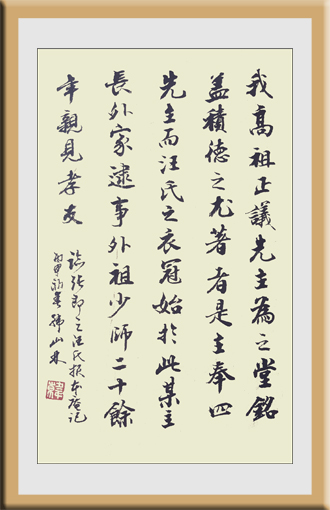 我高祖正議先生為之堂銘
盖積德之尤著者是生奉四
先生而汪氏之衣冠始於此某生
長外家逮事外祖少師二十餘
年親見孝友
臨張即之汪氏报本庵记
丙申初春